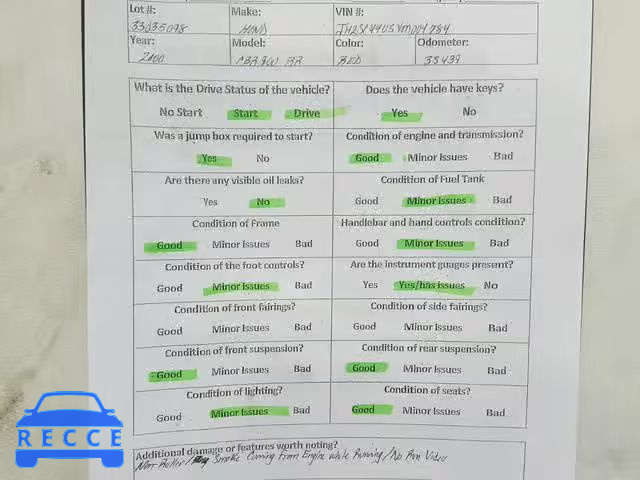 Lot #: Make: VIN #:
33035098 HOND
Year: Model: Color: Odometer:
2000 CBR900 RR RED 38439
What is the Drive Status of the vehicle? Does the vehicle have keys?
No Start Start Drive Yes No
Was a jump box required to start? Condition of engine and transmission?
Yes No Good Minor Issues Bad
Are there any visible oil leaks? Condition of Fuel Tank
Yes No Good Minor Issues Bad
Condition of Frame Handlebar and hand controls condition?
Good Minor Issues Bad Good Minor Issues Bad
Condition of the foot controls? Are the instrument guages present?
Good Minor Issues Bad Yes Yes/has issues No
Condition of front fairings? Condition of side fairings?
Good Minor Issues Bad Good Minor Issues Bad
Condition of front suspension? Condition of rear suspension?
Good Minor Issues Bad Good Minor Issues Bad
Condition of lighting? Condition of seats?
Good Minor Issues Bad Good Minor Issues Bad
Additional damage or features worth noting?
Smoke Coming From Engine while Running / No Run Video
RECCE